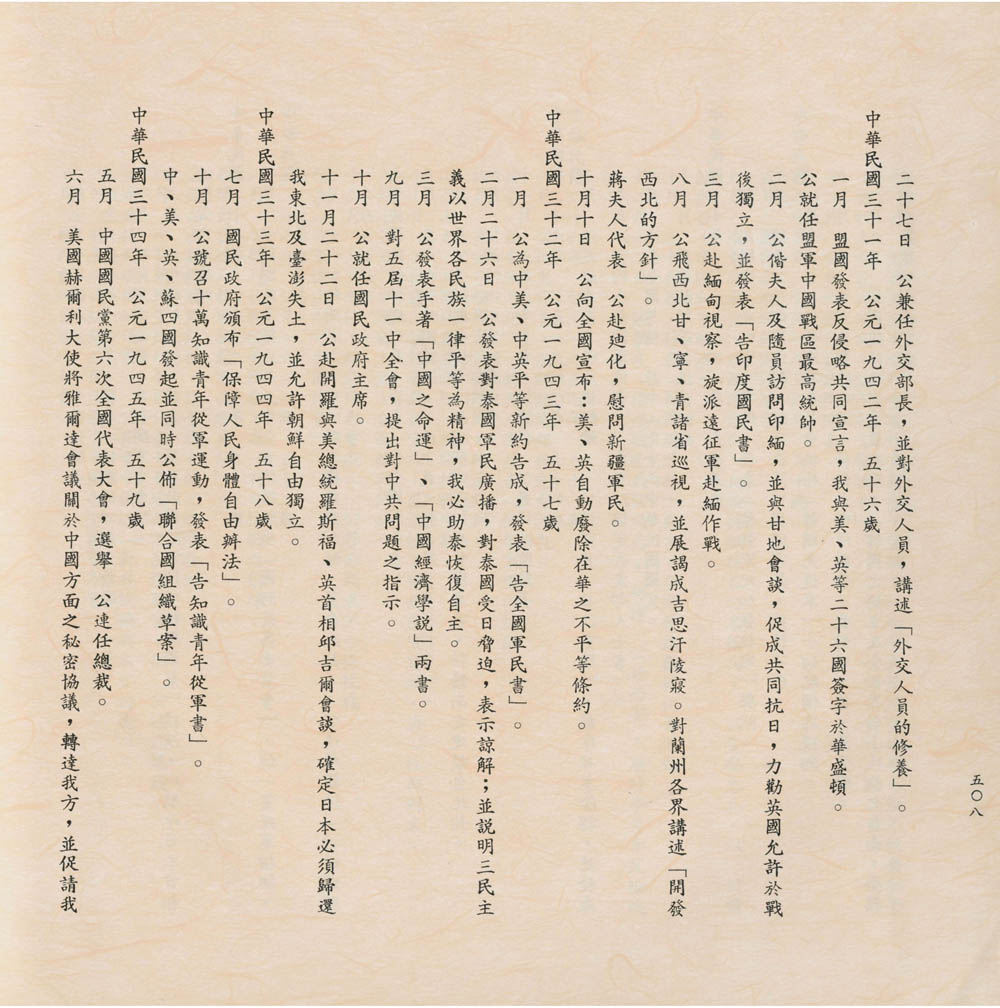 五〇八
二十七日　公兼任外交部長，並對外交人員，講述「外交人員的修養」。
中華民國三十一年　公元一九四二年　五十六歲
一月　盟國發表反侵略共同宣言，我與美、英等二十六國簽字於華盛頓。
公就任盟軍中國戰區最高統帥。
二月　公偕夫人及隨員訪問印緬，並與甘地會談，促成共同抗日，力勸英國允許於戰
後獨立，並發表「告印度國民書」。
三月　公赴緬甸視察，旋派遠征軍赴緬作戰。
八月　公飛西北甘、寧、青諸省巡視，並展謁成吉思汗陵寢。對蘭州各界講述「開發
西北的方針」。
蔣夫人代表　公赴廸化，慰問新疆軍民。
十月十日　公向全國宣布：美、英自動廢除在華之不平等條約。
中華民國三十二年　公元一九四三年　五十七歲
一月　公為中美、中英平等新約告成，發表「告全國軍民書」。
二月二十六日　公發表對泰國軍民廣播，對泰國受日脅迫，表示諒解；並説明三民主
義以世界各民族一律平等為精神，我必助泰恢復自主。
三月　公發表手著「中國之命運」、「中國經濟學説」兩書。
九月　對五屆十一中全會，提出對中共問題之指示。
十月　公就任國民政府主席。
十一月二十二日　公赴開羅與美總統羅斯福、英首相邱吉爾會談，確定日本必須歸還
我東北及臺澎失土，並允許朝鮮自由獨立。
中華民國三十三年　公元一九四四年　五十八歲
七月　國民政府頒布「保障人民身體自由辦法」。
十月　公號召十萬知識青年從軍運動，發表「告知識青年從軍書」。
中、美、英、蘇四國發起並同時公佈「聯合國組織草案」。
中華民國三十四年　公元一九四五年　五十九歲
五月　中國國民黨第六次全國代表大會，選舉　公連任總裁。
六月　美國赫爾利大使將雅爾達會議關於中國方面之秘密協議，轉達我方，並促請我